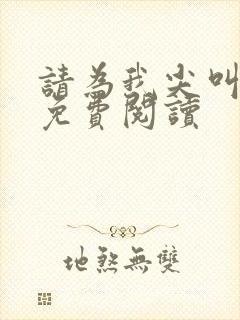 請為我尖叫
免費閱讀
地煞無雙